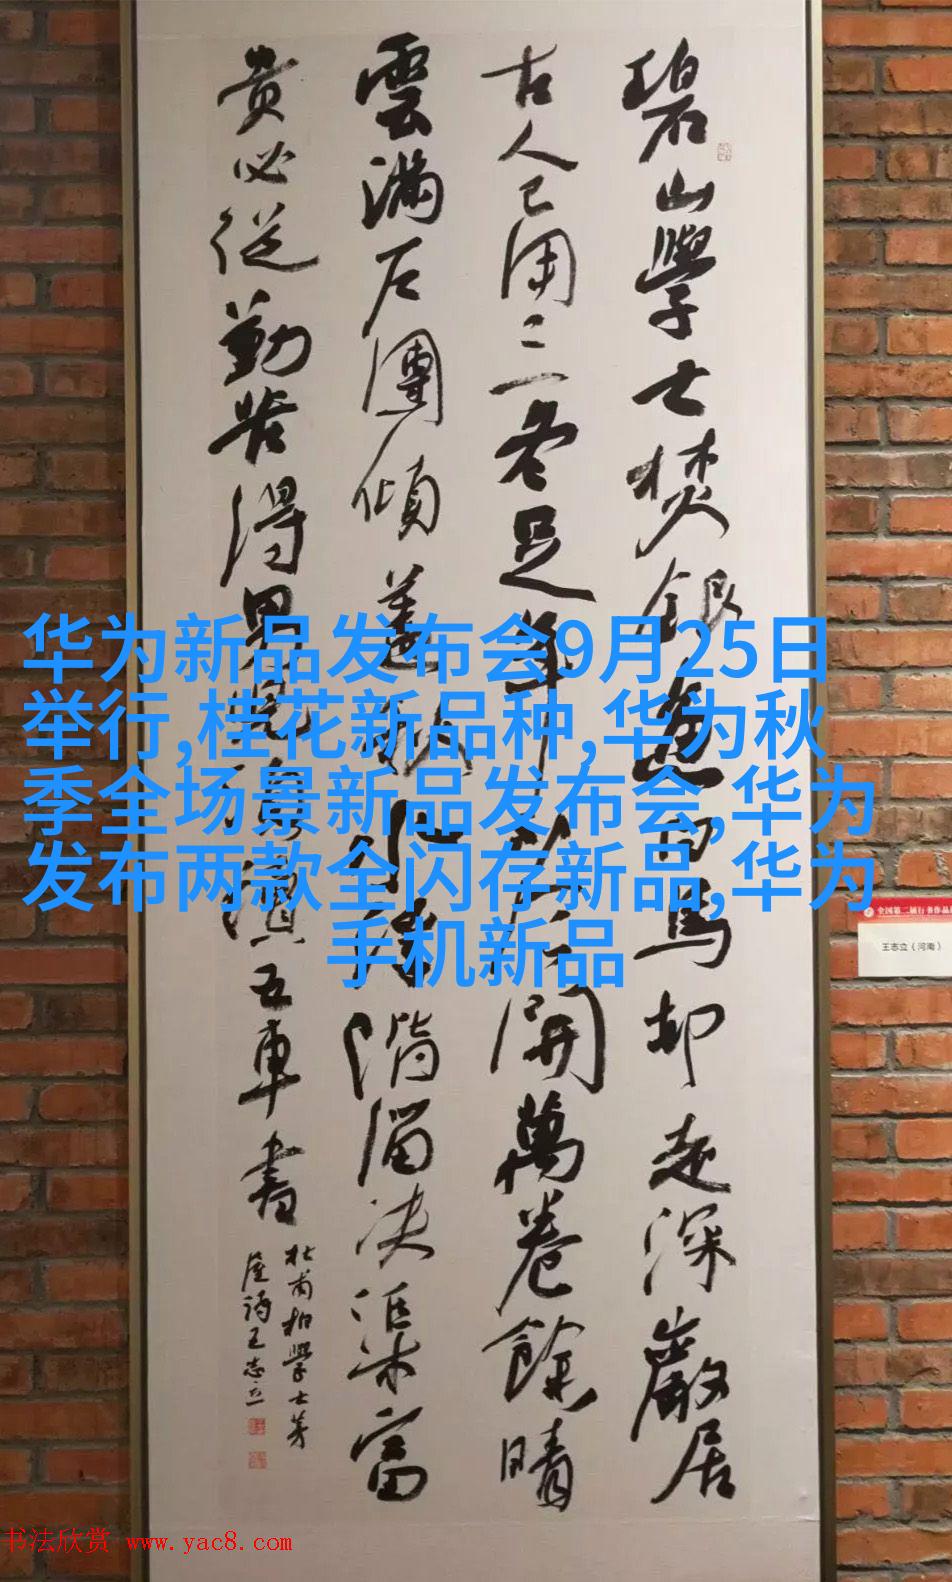 碧山學士焚銀魚白馬却走深巖居
古人已用三冬足年少今開萬卷餘晴
雲滿戶團傾蓋秋水浮階溜决渠富
貴必從勤苦得男兒須讀五車書
杜甫柏學士茅
屋詩王志立
华为新品发布会9月25日
举行,桂花新品种,华为秋
季全场景新品发布会,华为
发布两款全闪存新品,华为
手机新品
全国第二届行书作品
王志立（河南）
书法欣赏 www.yac8.com